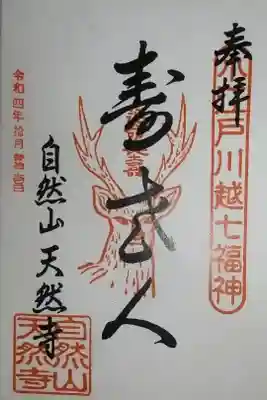 奉拝
小江戸川越七福神
寿老人
令和四年拾月
自然山 天然寺
自然山
天然寺